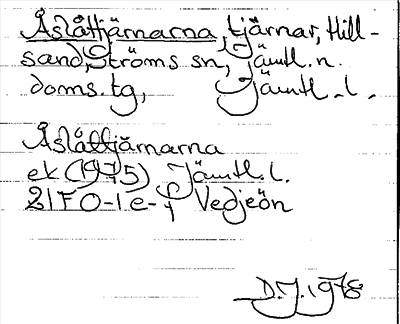 Åslåttjärnarna, tjärnar, Hill-
sand, Ströms sn, Jämtl. n.
doms. tg, Jämtl. l.
Åslåttjärnarna
ek (1975) Jämtl. l.
21F 0-1 e-f Vedjeön
D.J. 1978